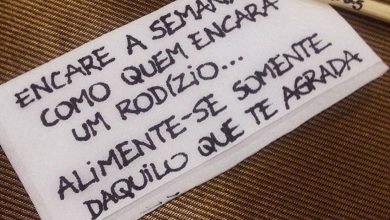 ENCARE A SEMANA
COMO QUEM ENCARA
UM RODÍZIO...
ALIMENTE-SE SOMENTE
DAQUILO QUE TE AGRADA